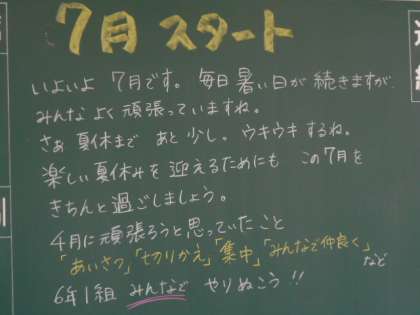 7月 スタート
いよいよ 7月です。毎日 暑い日が 続きますが
みんな よく 頑張っていますね。
さぁ 夏休まで あと 少し。ウキウキ するね。
楽しい 夏休みを 迎えるためにも この7月を
きちんと 過ごしましょう。
4月に 頑張ろうと 思っていたこと
「あいさつ」「切りかえ」「集中」「みんなで仲良く」
など
6年1組 みんなで やりぬこう!!